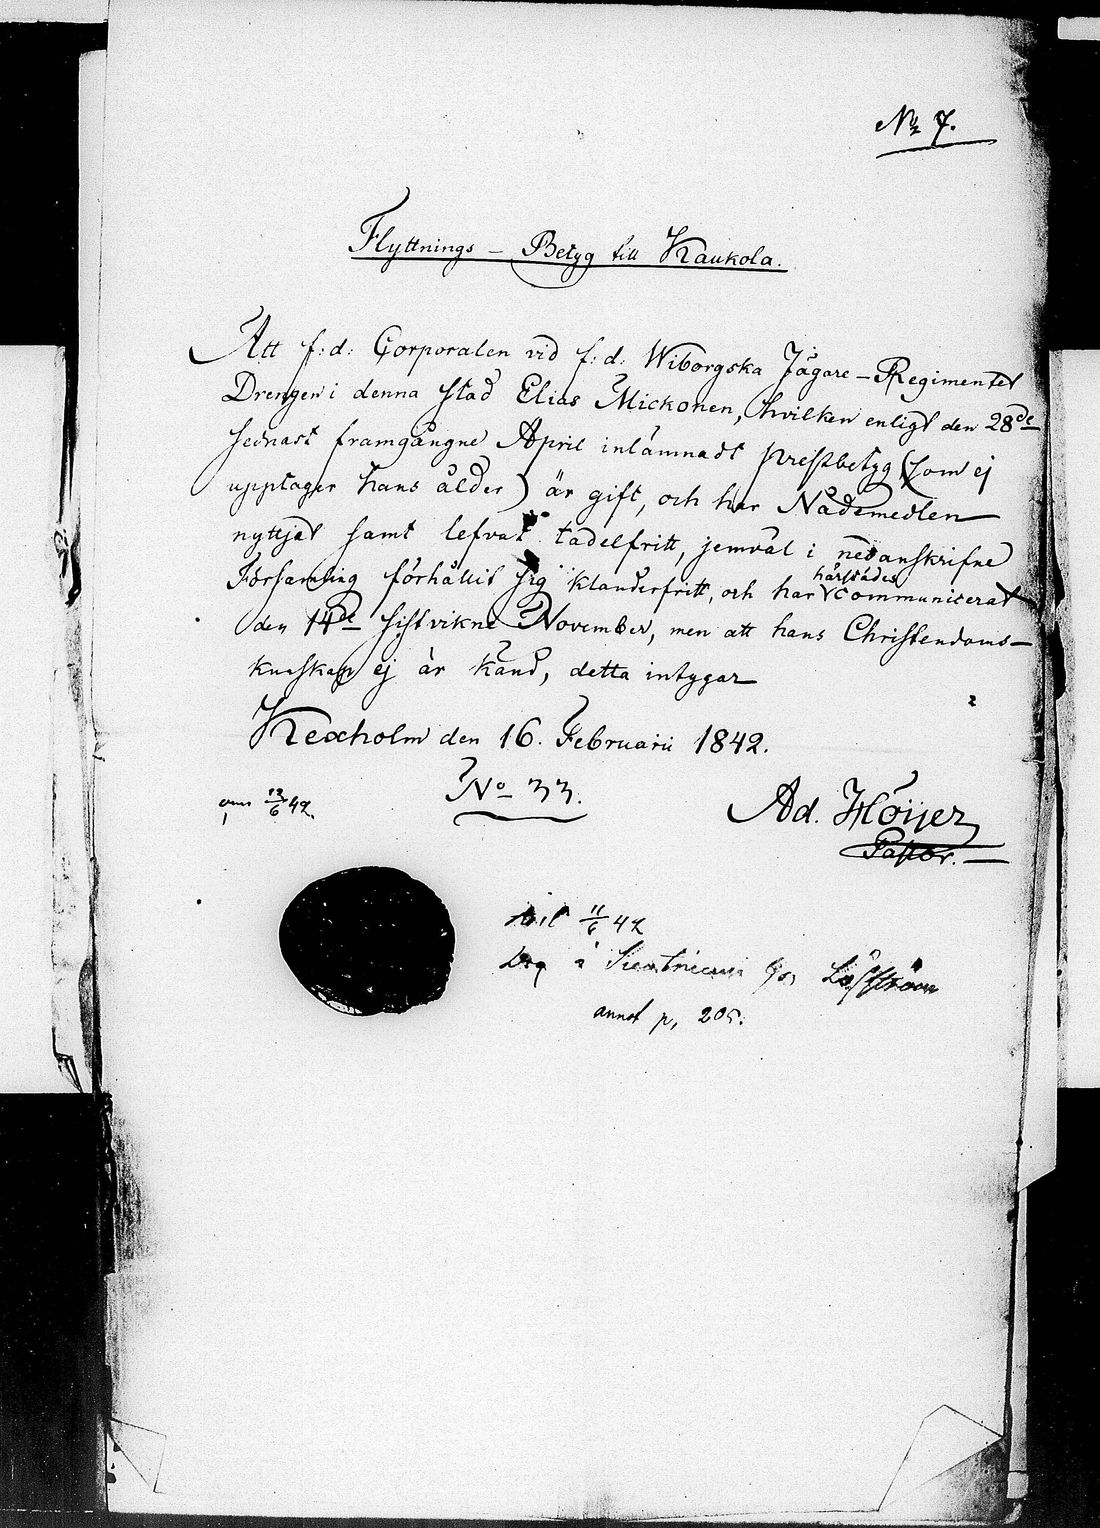 No 7.
Flyttnings - Betyg till Kaukola.
Att f:d: Corporalen vid f:d: Wiborgska Jägare-Regimentet
Drengen i denna stad Elias Mickonen, hvilken enligt den 28de
sednast framgångne April inlämnadt prestbetyg (som ej
upptager hans ålder) är gift, och har Nådemedlen
nyttjat samt lefvat tadelfritt, jemväl i nedanskrifne
Församling förhållit sig klanderfritt, och har härstädes communicerat
den 14de sistvikne November, men att hans Christendoms-
kunskap ej är känd, detta intygar
Kexholm den 16. Februarii 1842.
No 33.
12/6 42.
Ad. Höijer
Pastor.
11/6 42
Drg å hos Löfström
annot p. 205.